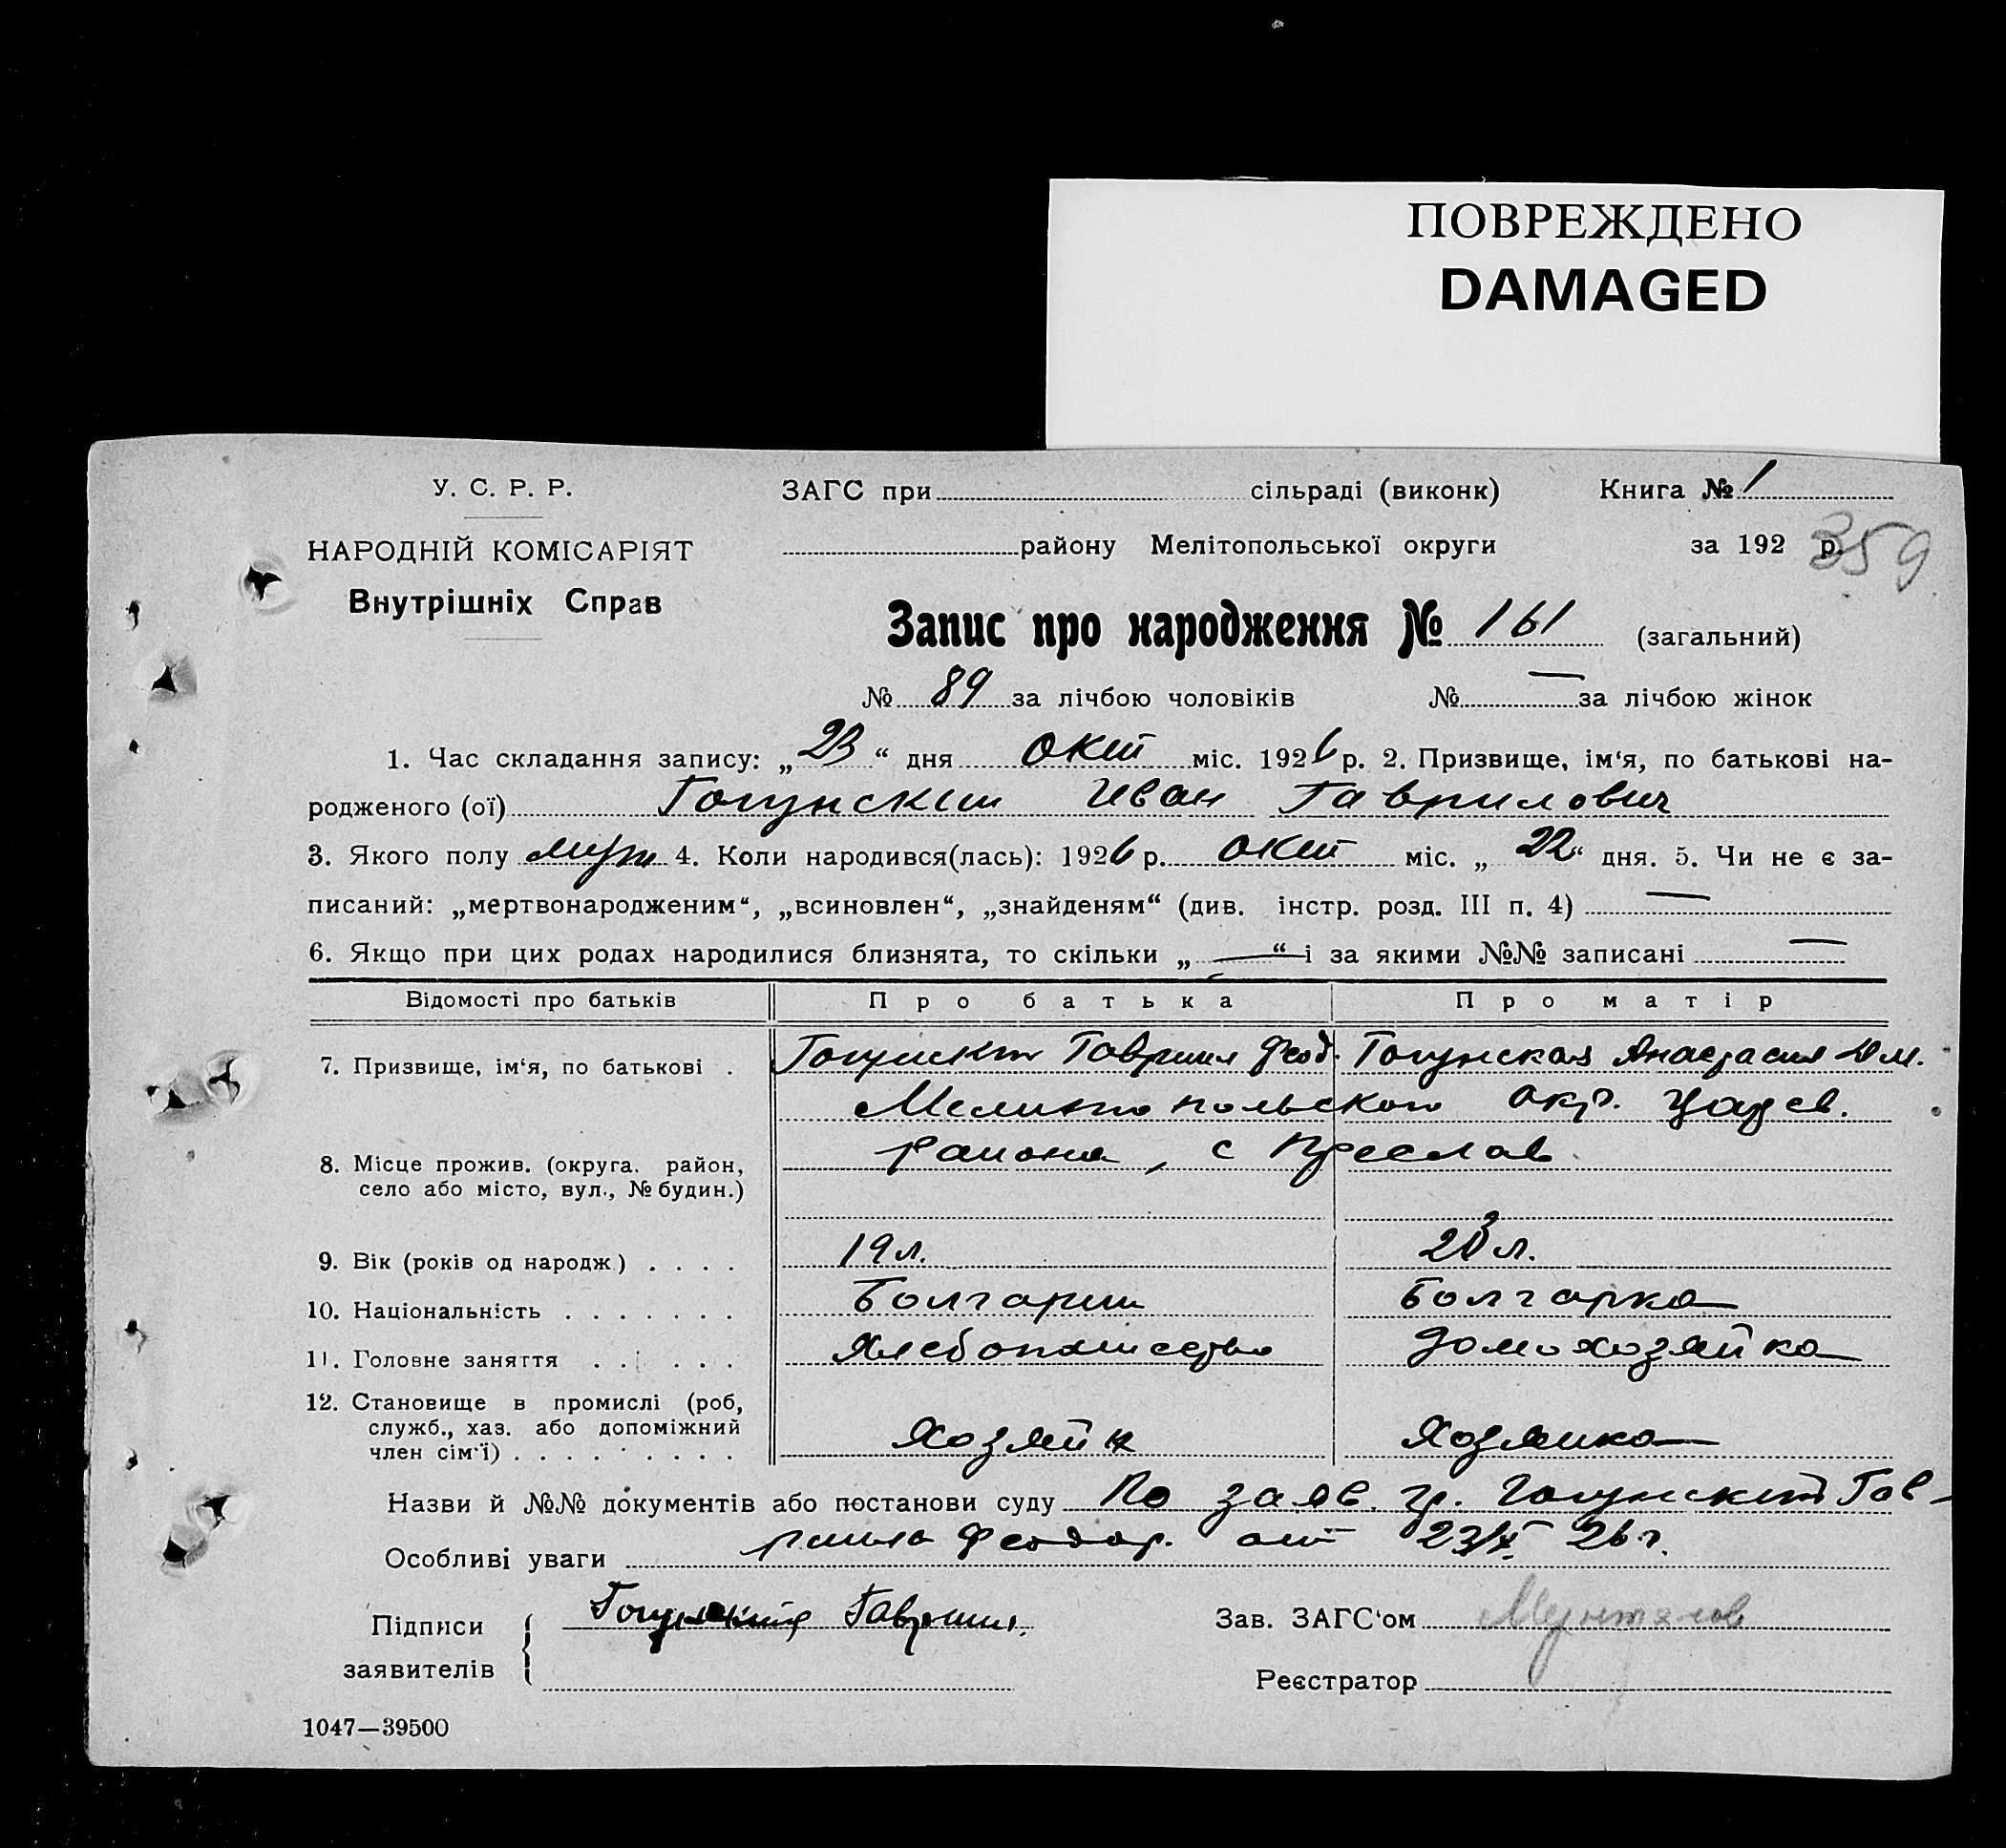 ПОВРЕЖДЕНО
DAMAGED
У. С. Р. Р.
ЗАГС при сільраді (виконк) Книга № 1
НАРОДНІЙ КОМІСАРІЯТ
району Мелітопольської округи за 192 р. 359
Внутрішніх Справ
Запис про народження № 161 (загальний)
№ 89 за лічбою чоловіків № — за лічбою жінок
1. Час складання запису: „23“ дня окт міс. 1926 р. 2. Призвище, ім‘я, по батькові на-
родженого (ої) Гогунский Иван Гаврилович
3. Якого полу муж 4. Коли народився(лась): 1926 р. окт міс. „22“ дня. 5. Чи не є за-
писаний: „мертвонародженим“, „всиновлен“, „знайденям“ (див. інстр. розд. III п. 4) —
6. Якщо при цих родах народилися близнята, то скільки „—“ і за якими №№ записані —
Відомості про батьків Про батька Про матір
7. Призвище, ім‘я, по батькові . Гогунский Гавриил Феод. Гогунская Анастасия Дм.
Мелитопольского окр. Цареев.
8. Місце прожив. (округа, район, района, с Преслав
село або місто, вул., № будин.)
9. Вік (років од народж.) . . . . 19 л. 23 л.
10. Національність . . . . . . . Болгарин Болгарка
11. Головне заняття . . . . . . Хлебопашество Домохозяйка
12. Становище в промислі (роб,
служб., хаз. або допоміжний
член сім‘ї) . . . . . . . . . Хозяйн Хозяйка
Назви й №№ документів або постанови суду По заяв. гр. Гогунский Гав-
Особливі уваги риила Феодор. от 23/X 26 г.
Підписи Гогунский Гавриил. Зав. ЗАГС‘ом
заявителів Реєстратор
1047—39500